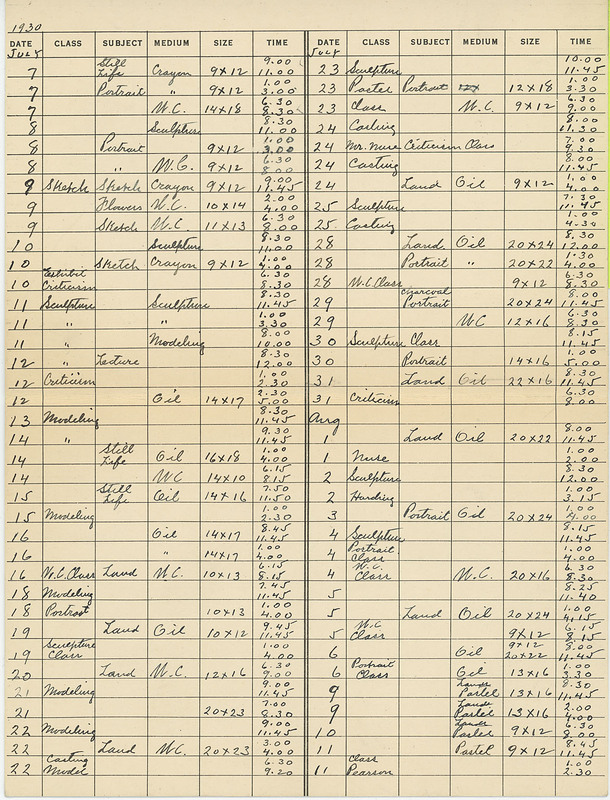 1930
DATE CLASS SUBJECT MEDIUM SIZE TIME
July
7 Still Life Crayon 9x12 9.00 11.00
7 Portrait " 9x12 1.00 3.00
7 W.C. 14x18 6.30
8 Sculpture 8.30 11.00
8 Portrait 9x12 1.00 3.00
8 " W.C. 9x12 6.30 8.00
9 Sketch Sketch Crayon 9x12 9.00 11.45
9 Flowers W.C. 10x14 2.00 4.00
9 Sketch W.C 11x13 6.30 8.00
10 Sculpture 8.30 11.00
10 Sketch Crayon 9x12 1.00 4.00
10 Exhibit Criticism 6.30 8.30
11 Sculpture Sculpture 8.30 11.45
11 " " 1.00 3.30
11 " Modeling 8.00 10.00
12 " Lecture 8.30 12.00
12 Criticism 1.00 2.30
12 Oil 14x17 2.30 5.00
13 Modeling 8.30 11.45
14 " 9.30 11.45
14 Still Life Oil 16x18 1.00 4.00
14 WC 14x10 6.15 8.15
15 Still Life Oil 14x16 7.50 11.50
15 Modeling 1.00 2.30
16 Oil 14x17 8.45 11.45
16 " 14x17 1.00 4.00
16 W.C. Class Land W.C. 10x13 6.15 8.15
18 Modeling 7.45 11.45
18 Portrait 10x13 1.00 4.00
19 Land Oil 10x12 9.45 11.45
19 Sculpture Class 1.00 4.00
20 Land W.C. 12x16 6.30 9.00
21 Modeling 9.00 11.45
21 20x23 7.00 8.30
22 Modeling 9.00 11.45
22 Land W.C. 20x23 3.00 4.00
22 Casting Model 6.30 9.20
DATE CLASS SUBJECT MEDIUM SIZE TIME
July
23 Sculpture 10.00 11.45
23 Pastel Portrait 12x18 1.00 3.30
23 Class W.C. 9x12 6.30 9.00
24 Casting 8.00 11.30
24 Mr. Nuse Criticism Class 7.00 9.30
24 Casting 8.00 11.45
24 Land Oil 9x12 1.00 4.00
25 Sculpture 7.30 11.45
25 Casting 1.00 4.30
28 Land Oil 20x24 8.30 12.00
28 Portrait " 20x22 1.30 4.00
28 W.C. Class 9x12 6.30 8.30
29 Charcoal Portrait 20x24 8.00 11.45
29 WC 12x16 6.30 8.30
30 Sculpture Class 8.15 11.45
30 Portrait 14x16 1.00 5.00
31 Land Oil 22x16 8.30 11.45
31 Criticism 6.30 8.00
Aug
1 Land Oil 20x22 8.00 11.45
1 Nuse 1.00 2.00
2 Sculpture 8.30 12.00
2 Harding 1.00 3.15
3 Portrait Oil 20x24 1.00 4.00
4 Sculpture 8.15 11.45
4 Portrait Class 1.00 4.00
4 W.C. Class W.C. 20x16 6.30 8.30
5 8.25 11.40
5 Land Oil 20x24 1.00 4.15
5 W.C Class 9x12 6.15 8.15
6 Oil 9x12 20x22 8.00 11.45
6 Portrait Class Oil 13x16 1.00 3.30
9 Lands Pastel 13x16 8.30 11.45
9 Lands Pastel 13x16 2.00 4.00
10 Lands Pastel 9x12 6.30 8.00
11 Pastel 9x12 8.45 11.45
11 Class Pearson 1.00 2.30